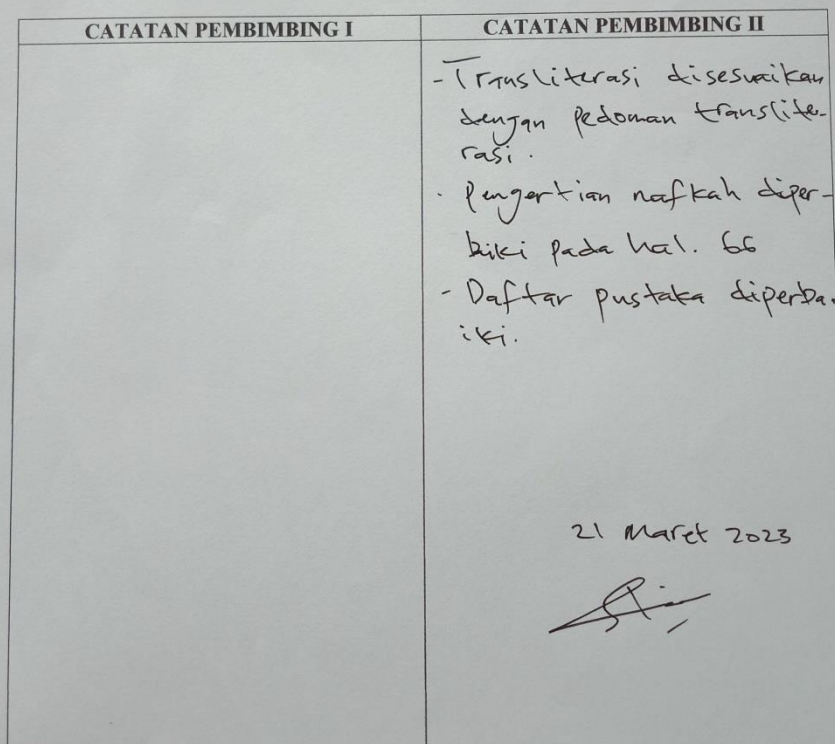 CATATAN PEMBIMBING I
CATATAN PEMBIMBING II
- Transliterasi disesuaikan
dengan pedoman translite-
rasi.
- Pengertian nafkah diper-
baiki pada hal. 66
- Daftar pustaka diperba-
iki.
21 Maret 2023